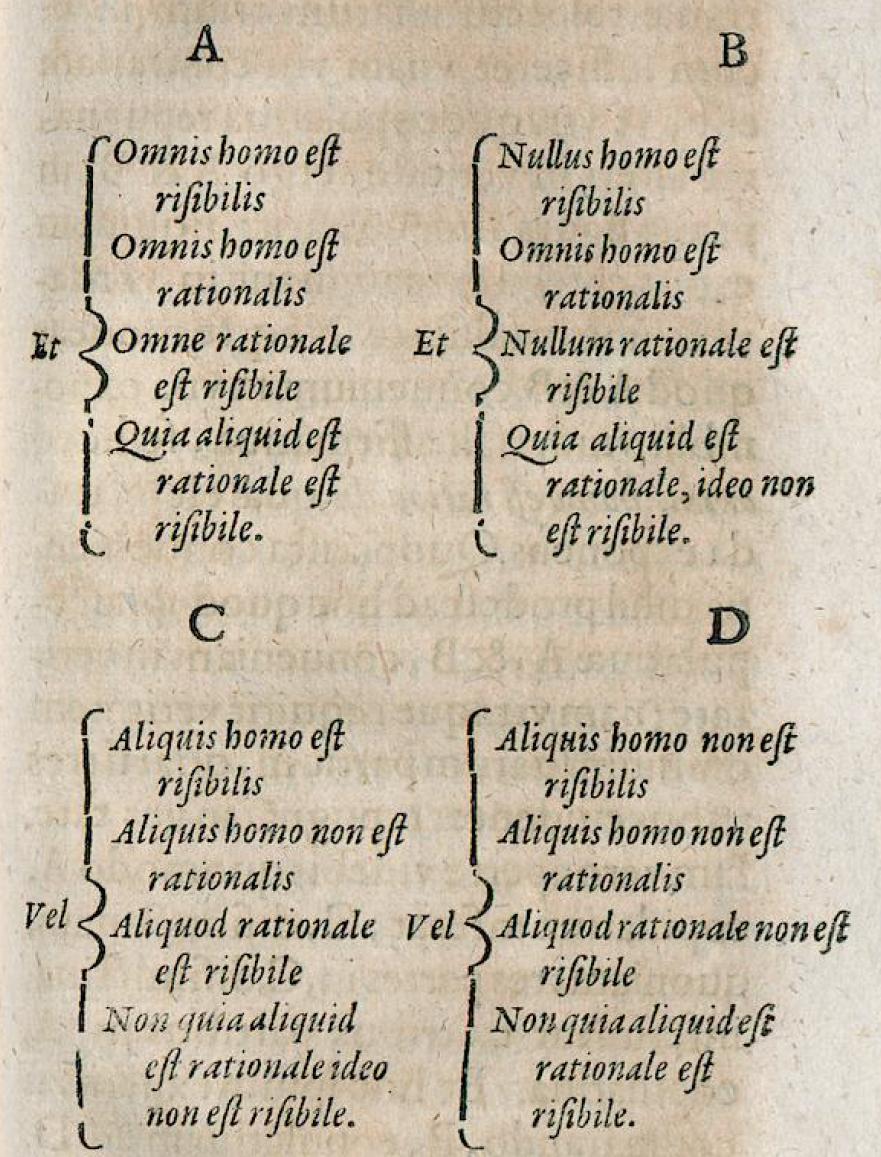 A
Omnis homo eſt
riſibilis
Omnis homo eſt
rationalis
Et
Omne rationale
eſt riſibile
Quia aliquid eſt
rationale eſt
riſibile.
B
Nullus homo eſt
riſibilis
Omnis homo eſt
rationalis
Et
Nullum rationale eſt
riſibile
Quia aliquid eſt
rationale, ideo non
eſt riſibile.
C
Aliquis homo eſt
riſibilis
Aliquis homo non eſt
rationalis
Vel
Aliquod rationale
eſt riſibile
Non quia aliquid
eſt rationale ideo
non eſt riſibile.
D
Aliquis homo non eſt
riſibilis
Aliquis homo non eſt
rationalis
Vel
Aliquod rationale non eſt
riſibile
Non quia aliquid eſt
rationale eſt
riſibile.